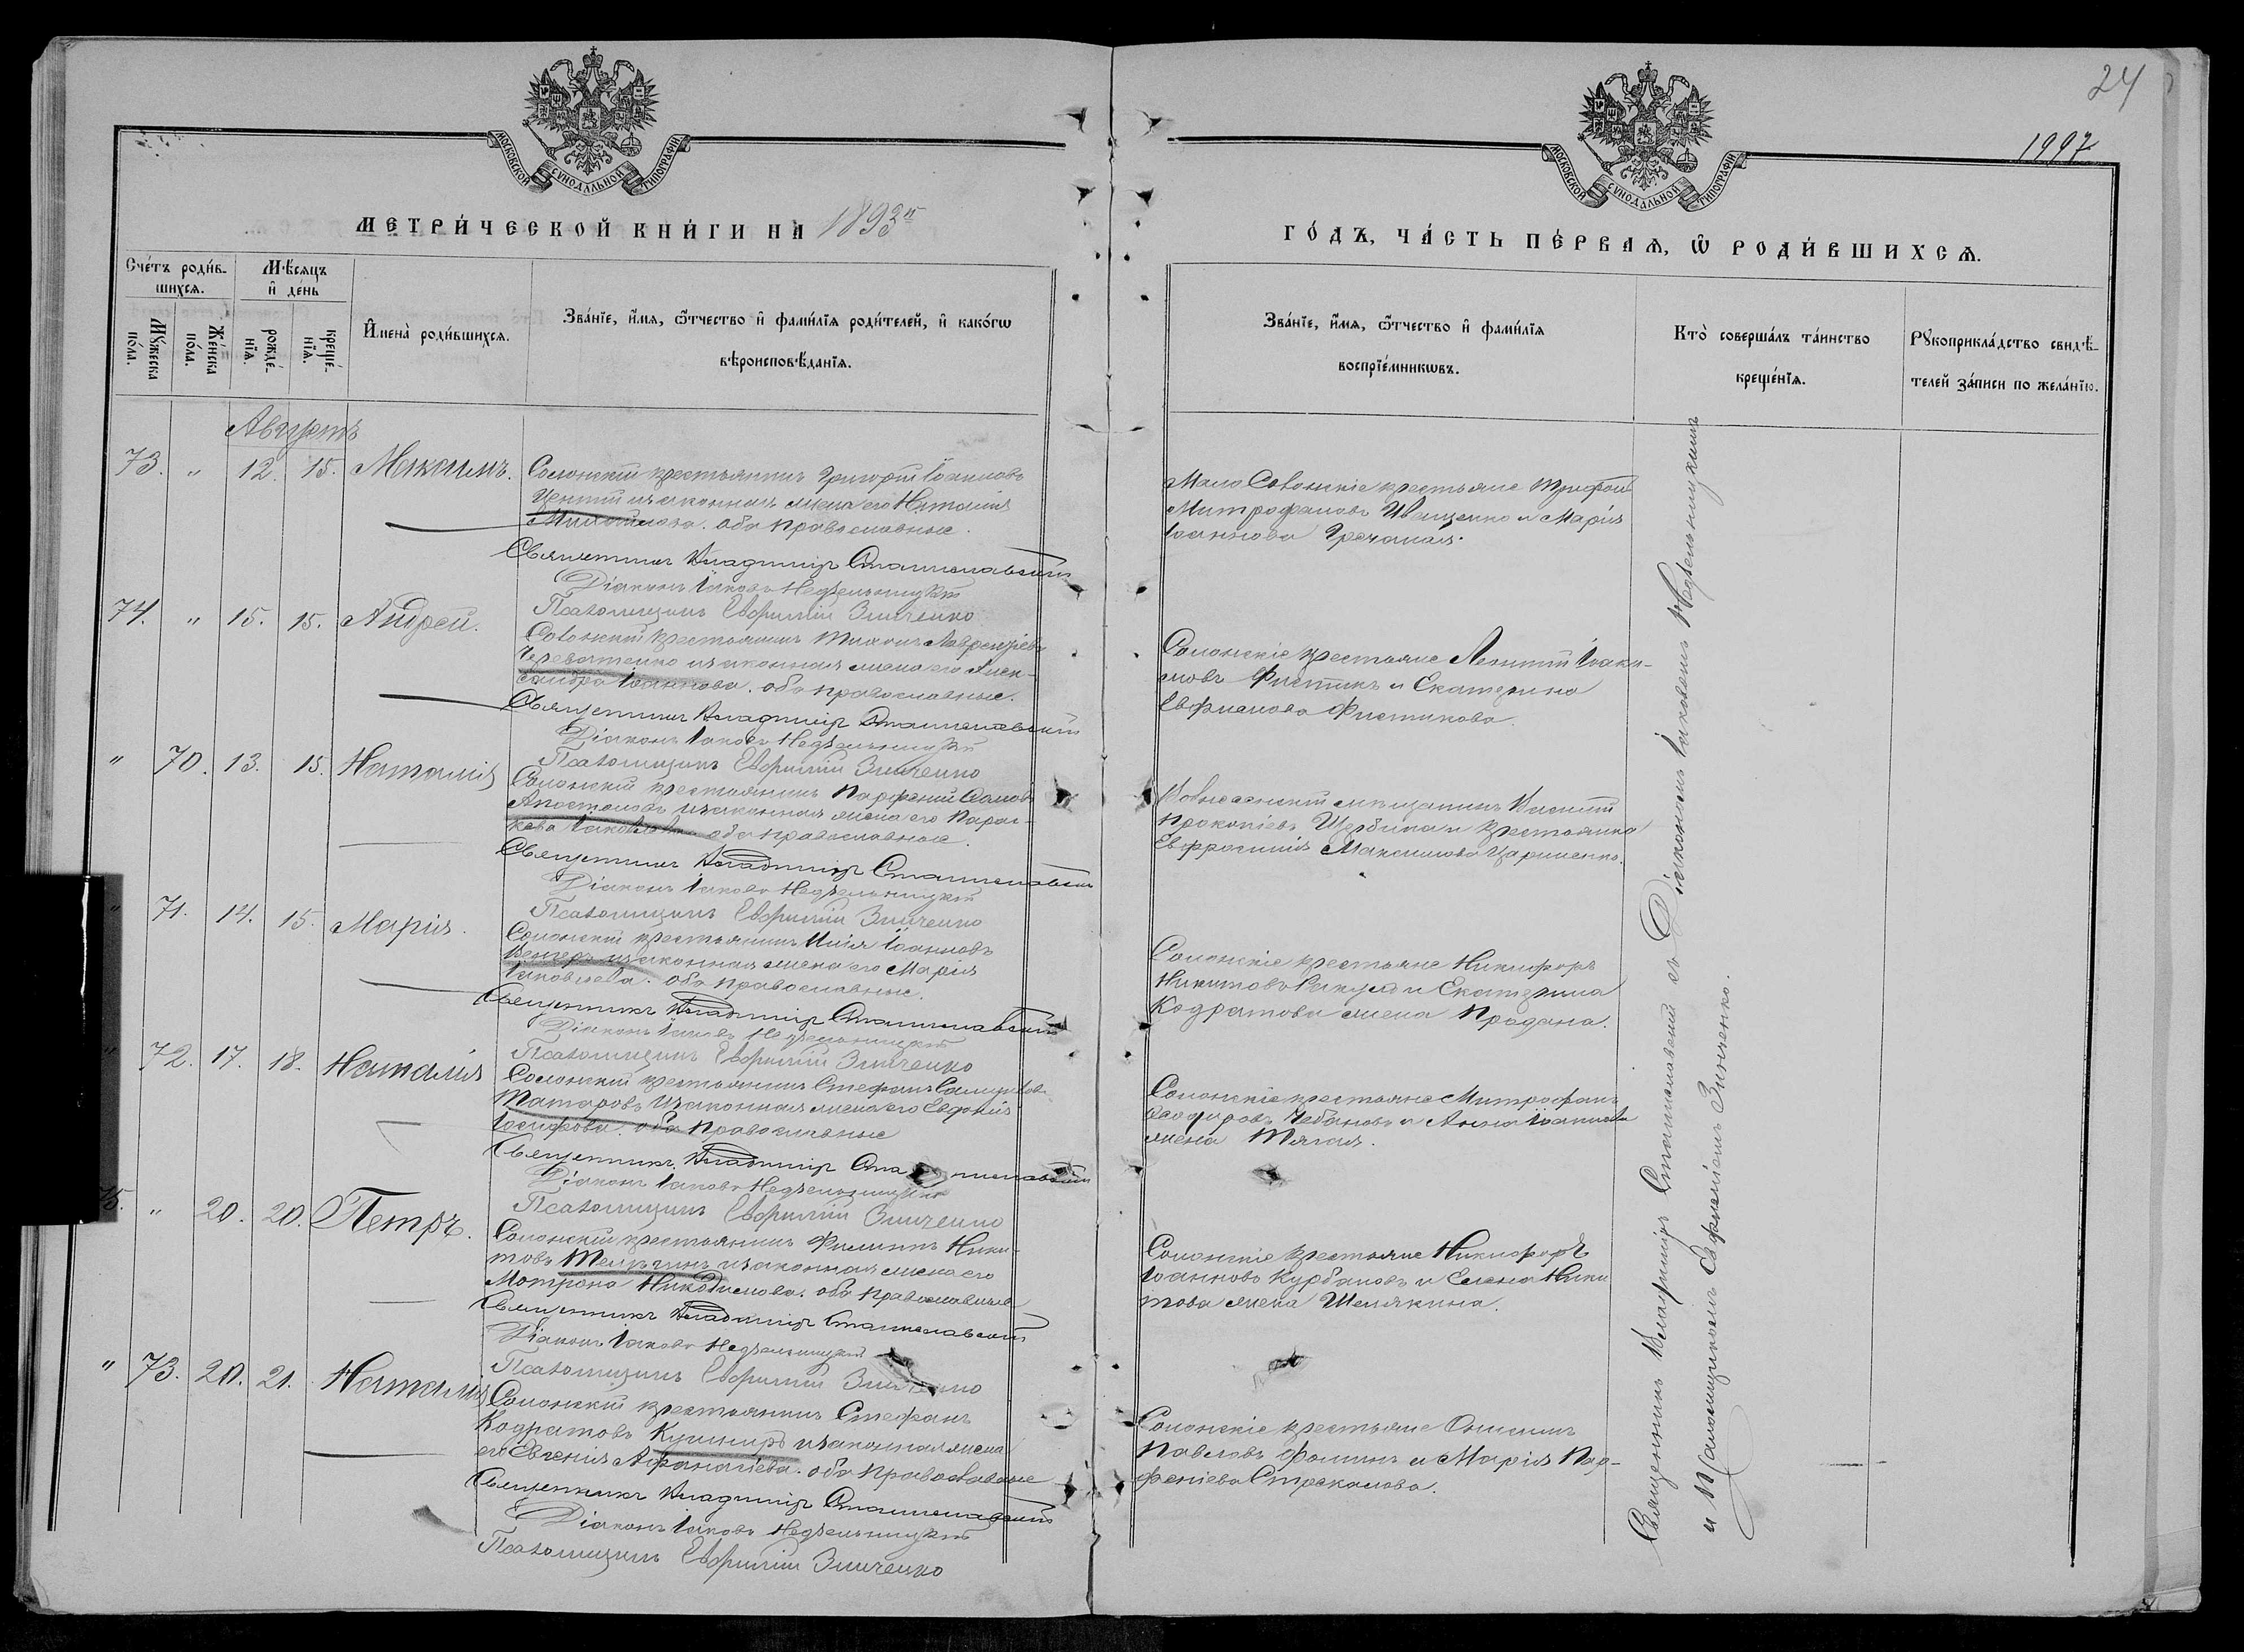 24
1997
МОСКОВСКОЙ СУНОДАЛЬНОЙ ТИПОГРАФІИ
МОСКОВСКОЙ СУНОДАЛЬНОЙ ТИПОГРАФІИ
МЕТРИ́ЧЕСКОЙ КНИ́ГИ НА 1893й
ГО́ДЪ, ЧА́СТЬ ПЕ́РВАѦ, Ѡ РОДИ́ВШИХСѦ.
Сче́тъ роди́вшихсѧ.
Мꙋ́жеска по́ла.
Же́нска по́ла.
Мѣ́сяцъ и҆ де́нь
рожде́нїѧ.
креще́нїѧ.
И҆мена̀ роди́вшихсѧ.
Зва́нїе, и҆́мѧ, ѻ҆́тчество и҆ фами́лїѧ роди́телей, и҆ како́гѡ
вѣроисповѣ́данїѧ.
Зва́нїе, и҆́мѧ, ѻ҆́тчество и҆ фами́лїѧ
воспрїе́мникѡвъ.
Кто̀ соверша́лъ та́инство
креще́нїѧ.
Рꙋкоприкла́дство свидѣ́-
телей за́писи по жела́нїю.
Августъ
73. " 12. 15. Максимъ.
Солонскій крестьянинъ Григорій Іоанновъ
и законная жена его Наталія
оба православные.
Священникъ Владиміръ Станиславскій
Діаконъ Іаковъ Недзельницкій
Псаломщикъ Евфимій Зинченко
Крестьяне Трифонъ
Митрофановъ Иващенко и Марія
Іоаннова Гречаная.
74. " 15. 15. Андрей.
Солонскій крестьянинъ Тихонъ Лаврентіевъ
Череватенко и законная жена его Алек-
сандра Іоаннова. оба православные.
Священникъ Владиміръ Станиславскій
Діаконъ Іаковъ Недзельницкій
Псаломщикъ Евфимій Зинченко
Солонскіе крестьяне Леонтій Іоаки-
мовъ Фистикъ и Екатерина
Евфимова Фистикова.
" 70. 13. 15. Наталія
Солонскій крестьянинъ Парфеній
Апостоловъ и законная жена его Парас-
кева Іаковлева оба православные.
Священникъ Владиміръ Станиславскій
Діаконъ Іаковъ Недзельницкій
Псаломщикъ Евфимій Зинченко
мѣщанинъ Василій
Прокопіевъ Щербина и крестьянка
Евфросинія Максимова Царименко.
" 71. 14. 15. Марія.
Солонскій крестьянинъ Илія Іоанновъ
Венгеръ и законная жена его Марія
Іаковлева. оба православные.
Священникъ Владиміръ Станиславскій
Діаконъ Іаковъ Недзельницкій
Псаломщикъ Евфимій Зинченко
Солонскіе крестьяне Никифоръ
Никитовъ и Екатерина
Кодратова жена Продана.
" 72. 17. 18. Наталія
Солонскій крестьянинъ Стефанъ
Татаровъ и законная жена его Евдокія
Іосифова. оба православные
Священникъ Владиміръ Станиславскій
Діаконъ Іаковъ Недзельницкій
Псаломщикъ Евфимій Зинченко
Солонскіе крестьяне Митрофанъ
Чебановъ и Анна Іоаннова
жена Тягая.
75. " 20. 20. Петръ.
Солонскій крестьянинъ Филиппъ Ники-
товъ и законная жена его
Матрона Никодимова. оба православные
Священникъ Владиміръ Станиславскій
Діаконъ Іаковъ Недзельницкій
Псаломщикъ Евфимій Зинченко
Солонскіе крестьяне Никифоръ
Іоанновъ Курбановъ и Елена Ники
това жена Шемякина.
" 73. 20. 21. Наталія
Солонскій крестьянинъ Стефанъ
Кодратовъ Кушниръ и законная жена
его Евгенія Афанасіева. оба православные
Священникъ Владиміръ Станиславскій
Діаконъ Іаковъ Недзельницкій
Псаломщикъ Евфимій Зинченко
Солонскіе крестьяне Онисимъ
Павловъ Фоминъ и Марія Пар-
феніева Стрекалова.
Священникъ Владиміръ Станиславскій съ Діакономъ Іаковомъ Недзельницкимъ
и Псаломщикомъ Евфиміемъ Зинченко.